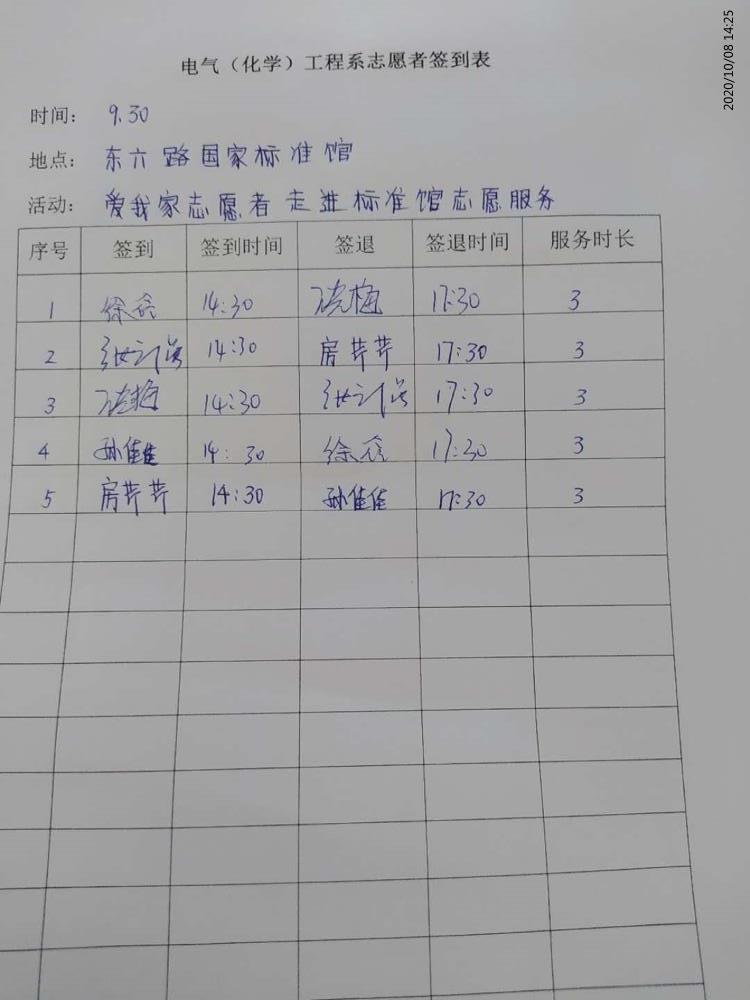 2020/10/08 14:25
电气（化学）工程系志愿者签到表
时间： 9.30
地点： 东六路国家标准馆
活动： 爱我家志愿者走进标准馆志愿服务
序号 签到 签到时间 签退 签退时间 服务时长
1 14:30 17:30 3
2 14:30 房芹芹 17:30 3
3 14:30 17:30 3
4 孙佳佳 14:30 17:30 3
5 房芹芹 14:30 孙佳佳 17:30 3